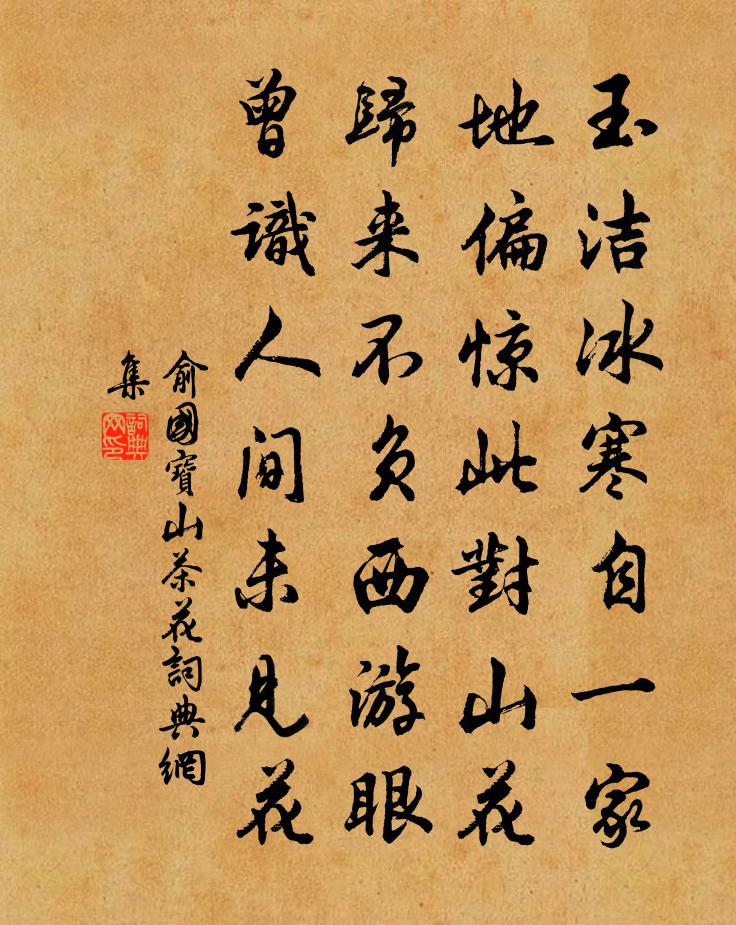 玉洁冰寒自一家
地偏惊此對山花
歸来不负西游眼
曾識人间未见花
俞國寶山茶花詞典網
集
詞典
网印